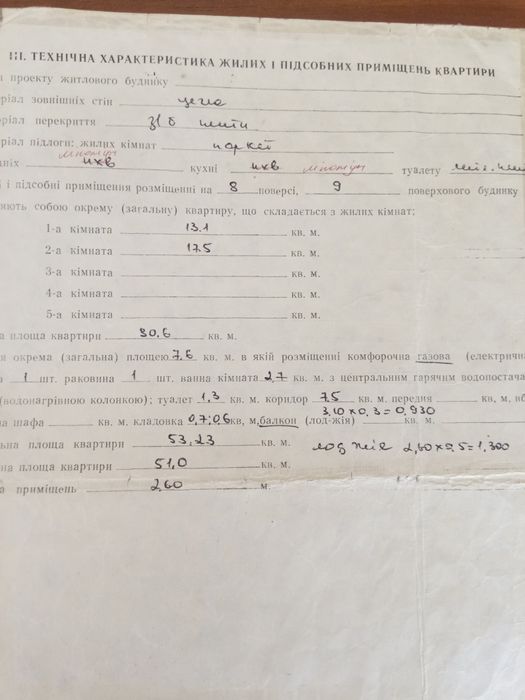 III. ТЕХНІЧНА ХАРАКТЕРИСТИКА ЖИЛИХ І ПІДСОБНИХ ПРИМІЩЕНЬ КВАРТИРИ
проекту житлового будинку
ріал зовнішніх стін цегла
ріал перекриття з/б плити
ріал підлоги: жилих кімнат паркет
лінолеум
ніх пхв кухні пхв лінолеум туалету
і підсобні приміщення розміщенні на 8 поверсі, 9 поверхового будинку
яють собою окрему (загальну) квартиру, що складається з жилих кімнат:
1-а кімната 13.1 кв. м.
2-а кімната 17.5 кв. м.
3-а кімната кв. м.
4-а кімната кв. м.
5-а кімната кв. м.
а площа квартири 30.6 кв. м.
я окрема (загальна) площею 7.6 кв. м. в якій розміщенні комфорочна газова (електрична
1 шт. раковина 1 шт. ванна кімната 2,7 кв. м. з центральним гарячим водопостача
(водонагрівною колонкою); туалет 1,3 кв. м. коридор 7.5 кв. м. передня кв. м, вб
3,10 х 0,3 = 0,930
на шафа кв. м. кладовка 0,7; 0,6 кв, м, балкон (лод-жія) кв. м.
льна площа квартири 53,23 кв. м. лоджія 2,60 х 0,5 = 1,300
на площа квартири 51,0 кв. м.
а приміщень 2,60 м.